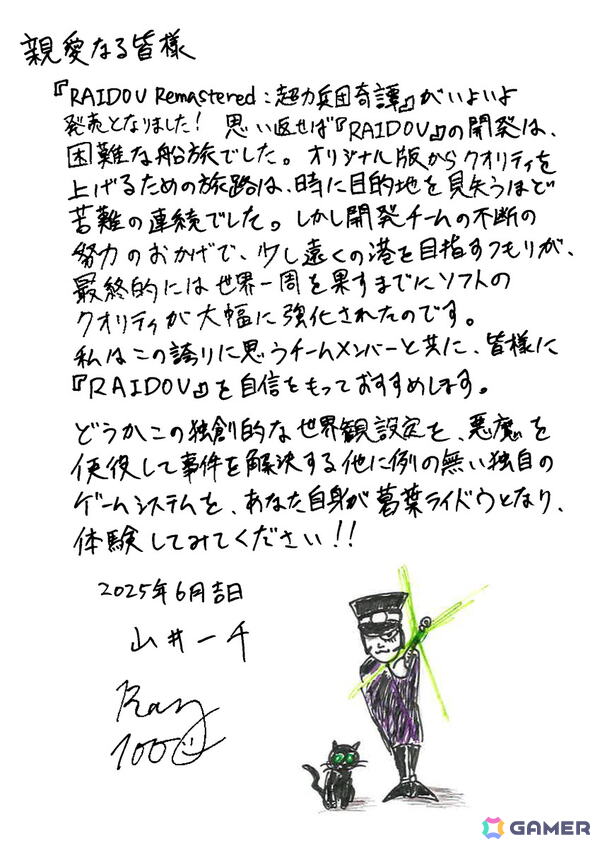 親愛なる皆様
『RAIDOU Remastered:超力兵団奇譚』がいよいよ
発売となりました! 思い返せば『RAIDOU』の開発は、
困難な船旅でした。オリジナル版からクオリティを
上げるための旅路は、時に目的地を見失うほど
苦難の連続でした。しかし開発チームの不断の
努力のおかげで、少し遠くの港を目指すつもりが、
最終的には世界一周を果すまでにソフトの
クオリティが大幅に強化されたのです。
私はこの誇りに思うチームメンバーと共に、皆様に
『RAIDOU』を自信をもっておすすめします。
どうかこの独創的な世界観設定を、悪魔を
使役して事件を解決する他に例の無い独自の
ゲームシステムを、あなた自身が葛葉ライドウとなり、
体験してみてください!!
2025年6月吉日
山井一千
Ray
1000
GAMER